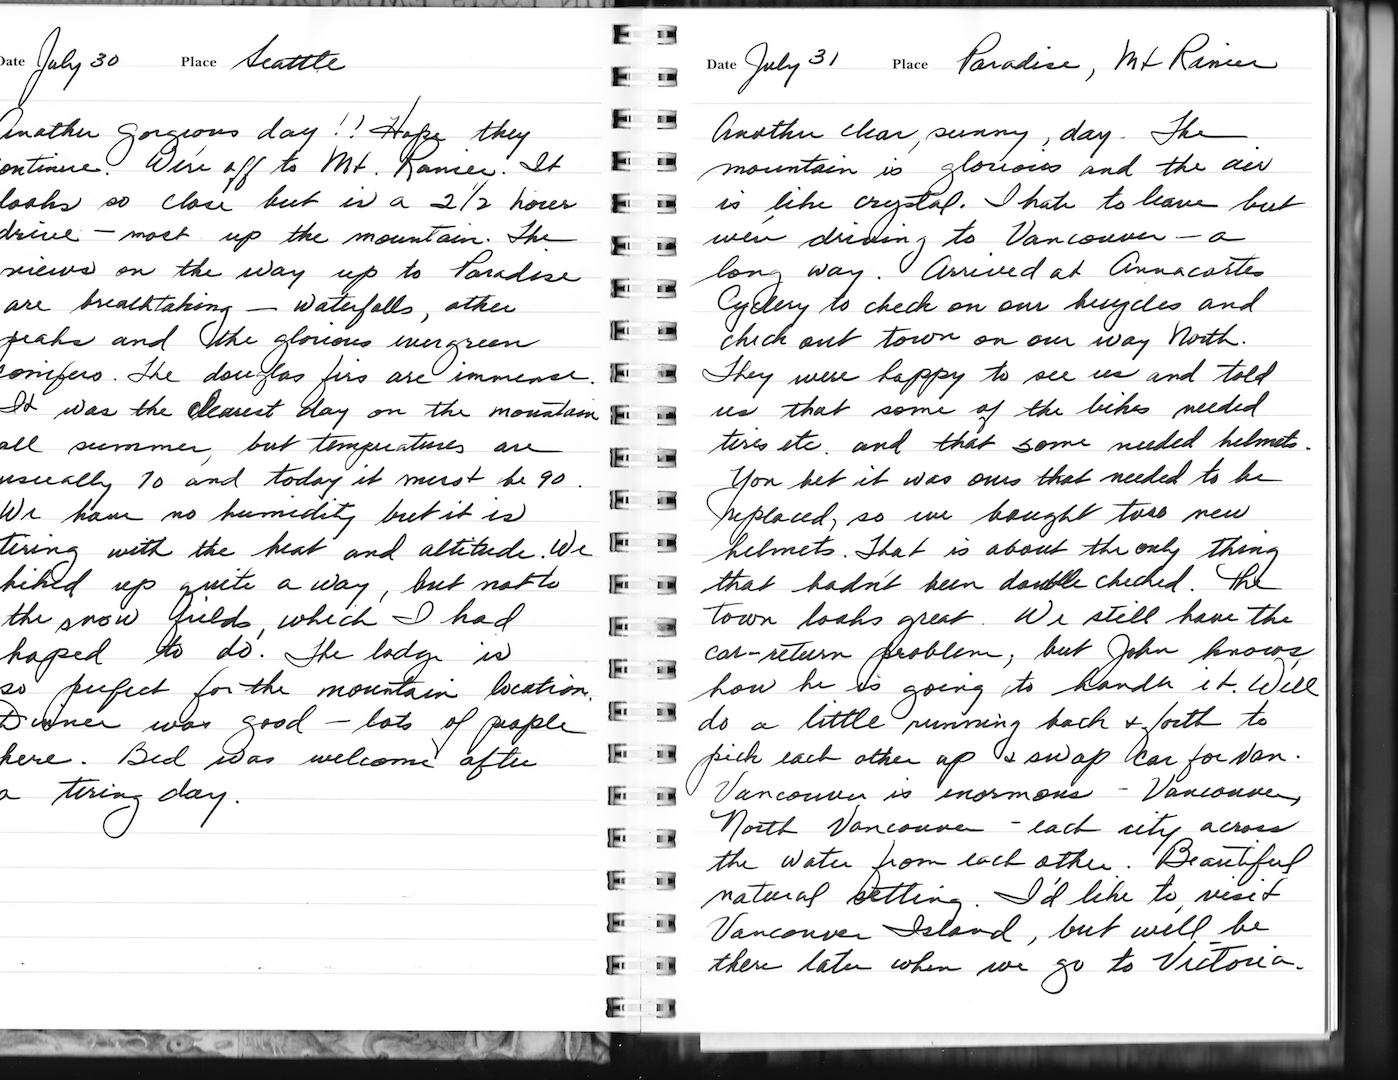 Date July 30 Place Seattle
Another gorgeous day!! Hope they
ontinue. We're off to Mt. Ranier. It
looks so close but is a 2 1/2 hour
drive – most up the mountain. The
views on the way up to Paradise
are breathtaking – waterfalls, other
peaks and the glorious evergreen
conifers. The douglas firs are immense.
It was the clearest day on the mountain
all summer, but temperatures are
usually 70 and today it must be 90.
We have no humidity but it is
tiring with the heat and altitude. We
hiked up quite a way, but not to
the snow fields, which I had
hoped to do. The lodge is
so perfect for the mountain location.
Dinner was good – lots of people
here. Bed was welcome after
a tiring day.
Date July 31 Place Paradise, Mt Ranier
Another clear, sunny, day. The
mountain is glorious and the air
is like crystal. I hate to leave but
we're driving to Vancouver – a
long way. Arrived at Annacortes
Cyclery to check on our bicycles and
check out town on our way North.
They were happy to see us and told
us that some of the bikes needed
tires etc. and that some needed helmets.
You bet it was ours that needed to be
replaced, so we bought two new
helmets. That is about the only thing
that hadn't been double checked. The
town looks great. We still have the
car-return problem, but John knows
how he is going to handle it. Will
do a little running back & forth to
pick each other up & swap car for van.
Vancouver is enormous – Vancouver,
North Vancouver – each city across
the water from each other. Beautiful
natural setting. I'd like to visit
Vancouver Island, but will be
there later when we go to Victoria.